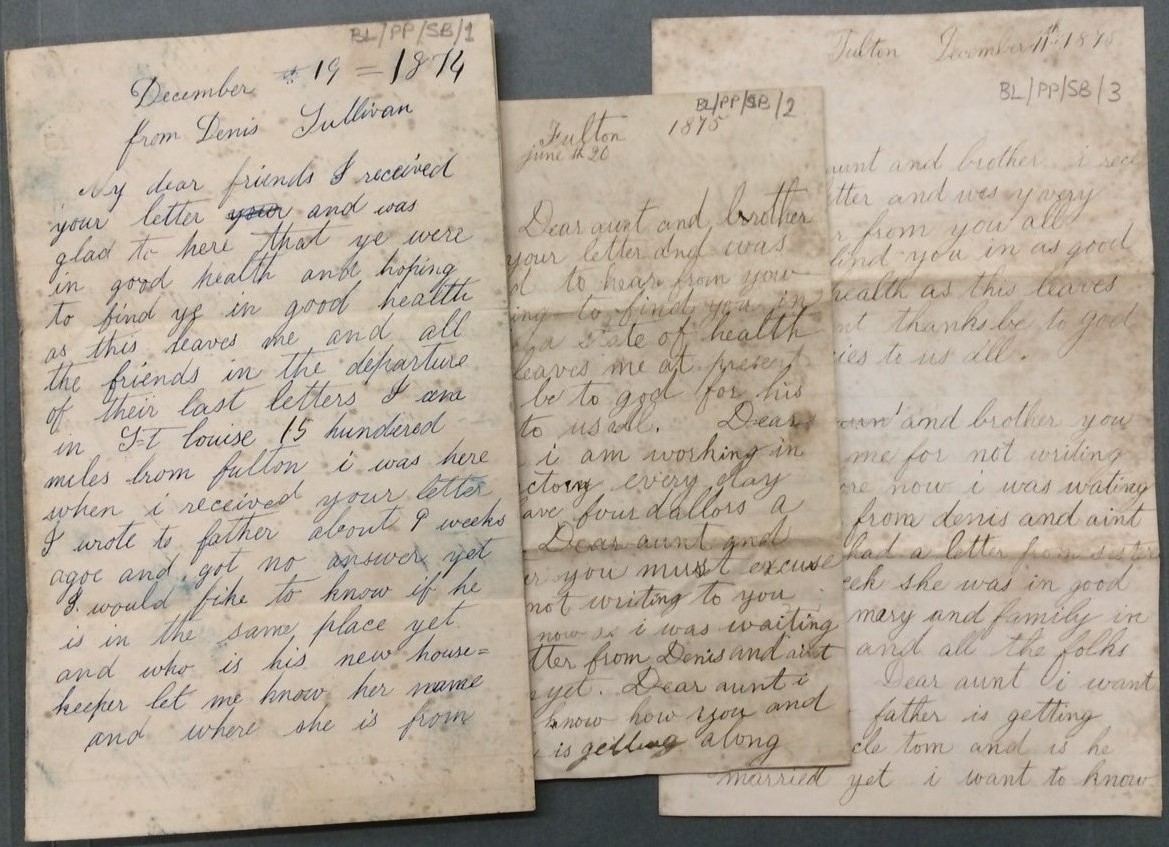 BL/PP/SB/1
December 19 = 1874
from Denis Sullivan
My dear friends I received
your letter your and was
glad to here that ye were
in good health and hoping
to find ye in good health
as this leaves me and all
the friends in the departure
of their last letters I am
in S-T louise 15 hundred
miles from fulton i was here
when i received your letter
I wrote to father about 9 weeks
agoe and got no answer yet
I would like to know if he
is in the same place yet
and who is his new house=
keeper let me know her name
and where she is from
BL/PP/SB/2
Fulton 1875
june th 20
Dear aunt and brother
your letter and was
d to hear from you
ing to find you in
a state of health
leaves me at present
be to god for his
to us all. Dear
i am working in
ctory every day
ave four dallors a
Dear aunt and
er you must excuse
not writing to you
now i was waiting
tter from Denis and aint
yet. Dear aunt i
know how you and
is getting along
Fulton December 11th 1875
BL/PP/SB/3
aunt and brother i rece
tter and was very
r from you all
find you in as good
health as this leaves
nt thanks be to god
cies to us all.
and brother you
me for not writing
ore now i was wating
from denis and aint
had a letter from sister
eek she was in good
mary and family in
and all the folks
Dear aunt i want
father is getting
cle tom and is he
married yet i want to know